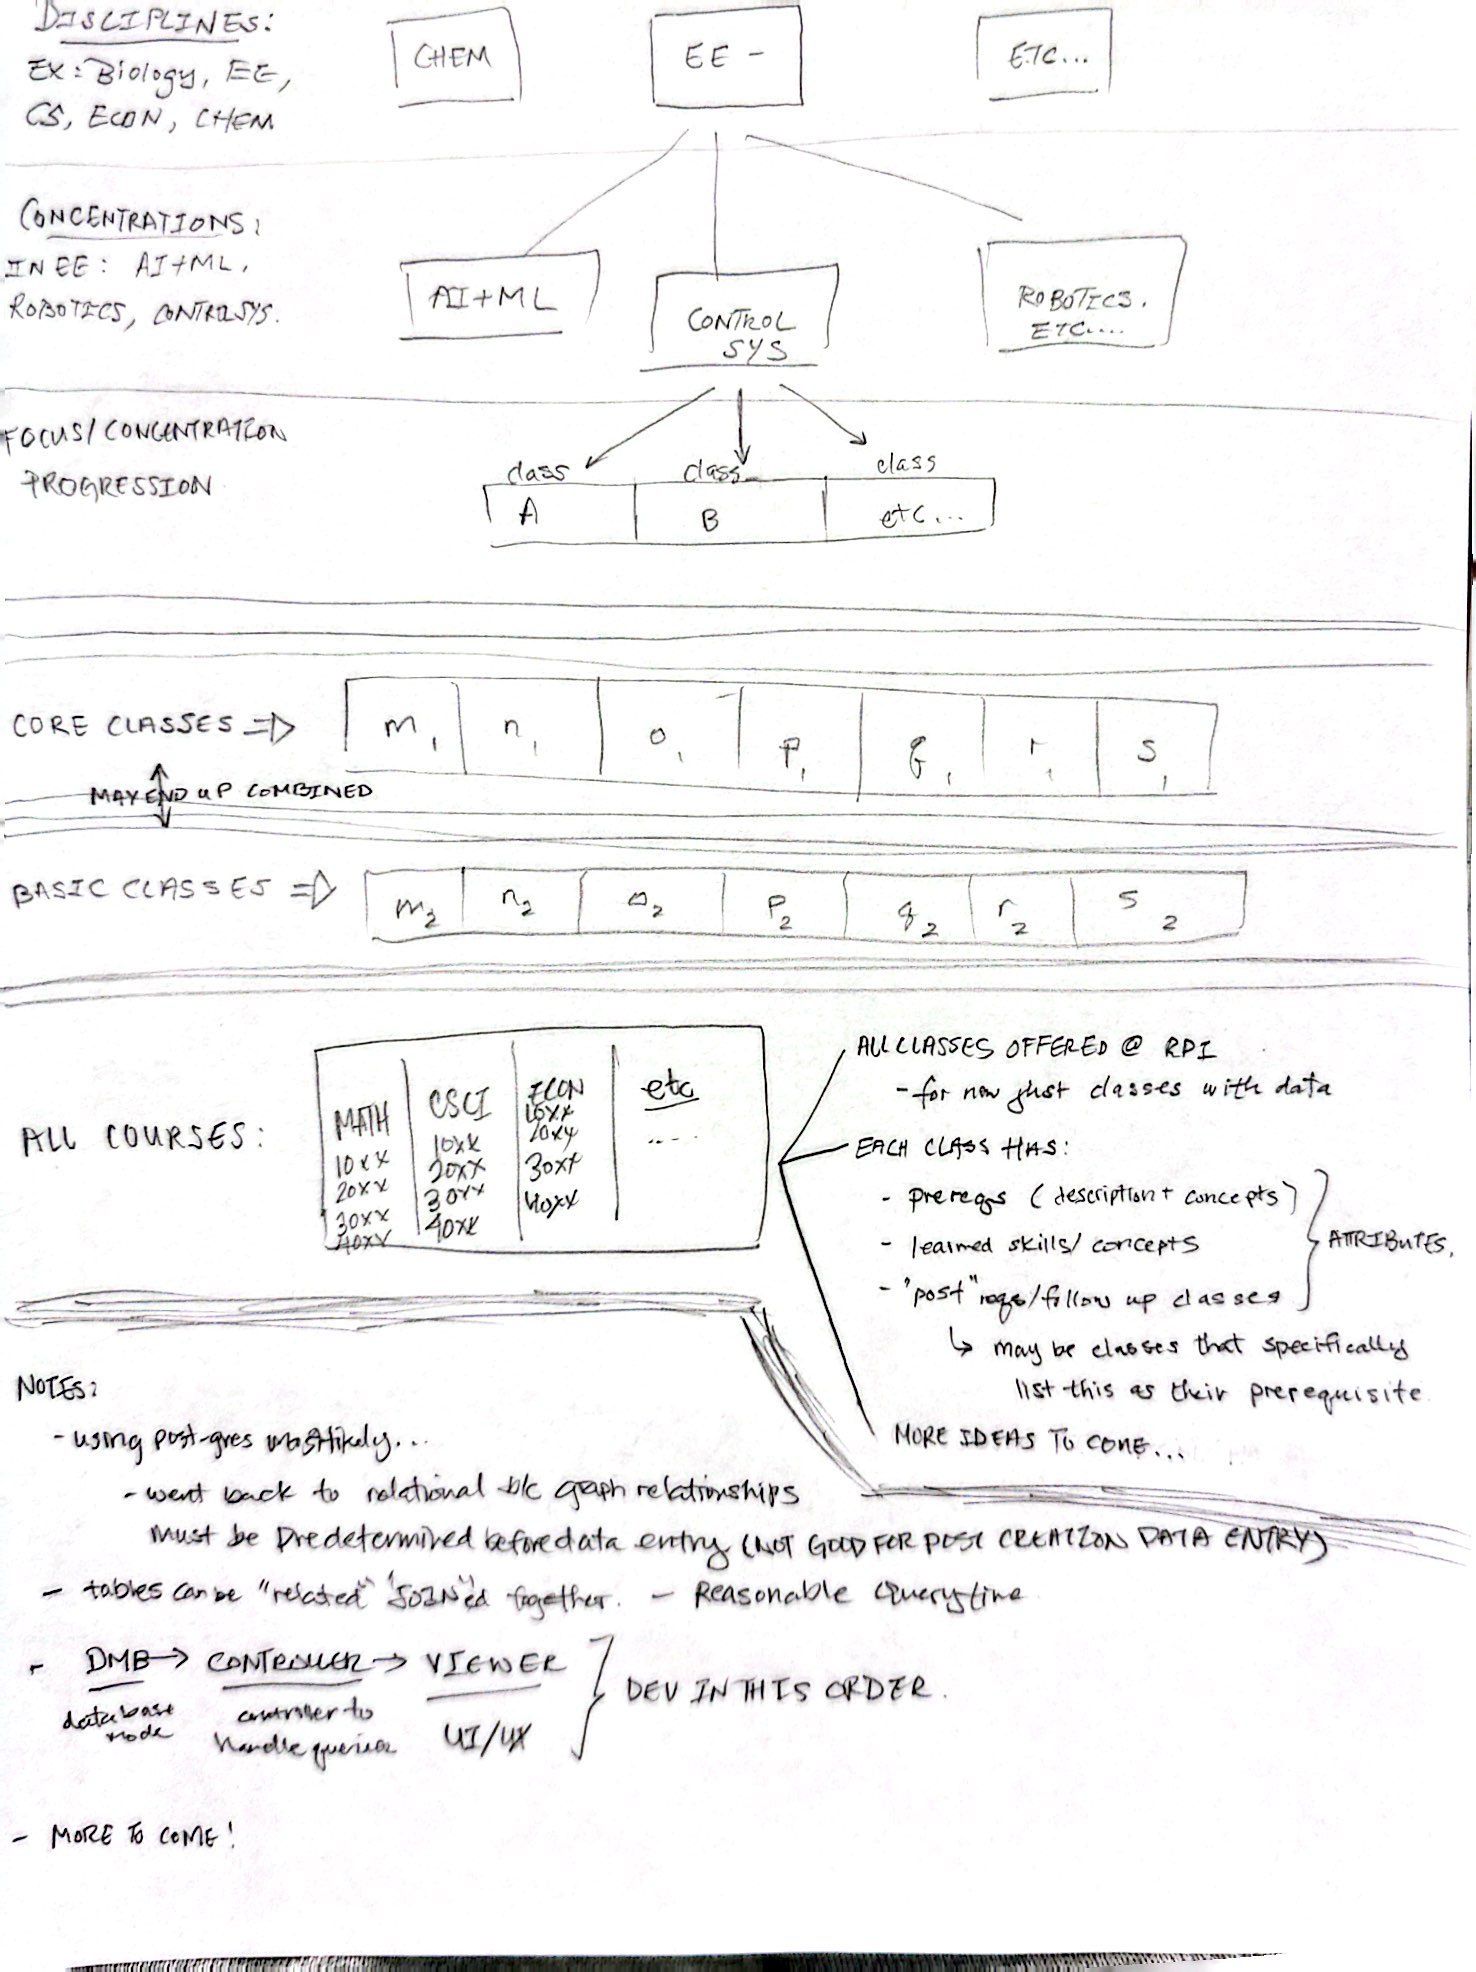 DISCIPLINES:
EX: Biology, EE,
CS, ECON, CHEM
CHEM
EE -
ETC...
CONCENTRATIONS:
IN EE: AI+ML,
ROBOTICS, CONTROLSYS.
AI+ML
CONTROL
SYS
ROBOTICS.
ETC....
FOCUS/CONCENTRATION
PROGRESSION
class
A
class
B
class
etc...
CORE CLASSES ⇒
m1 n1 o1 p1 q1 r1 s1
MAY END UP COMBINED
BASIC CLASSES ⇒
m2 n2 o2 p2 q2 r2 s2
ALL COURSES:
MATH
10xx
20xx
30xx
40xx
CSCI
10xx
20xx
30xx
40xx
ECON
10xx
20xx
30xx
40xx
etc
.....
ALL CLASSES OFFERED @ RPI
- for now just classes with data
EACH CLASS HAS:
- prereqs (description + concepts)
- learned skills/concepts
- "post" reqs/follow up classes
ATTRIBUTES.
↳ may be classes that specifically
list this as their prerequisite.
MORE IDEAS TO COME...
NOTES:
- using post-gres most likely...
- went back to relational b/c graph relationships
must be predetermined before data entry (NOT GOOD FOR POST CREATION DATA ENTRY)
- tables can be "related" "JOIN"ed together. - Reasonable Query time
- DMB → CONTROLLER → VIEWER
database
node
controller to
handle queries
UI/UX
DEV IN THIS ORDER.
- MORE TO COME!